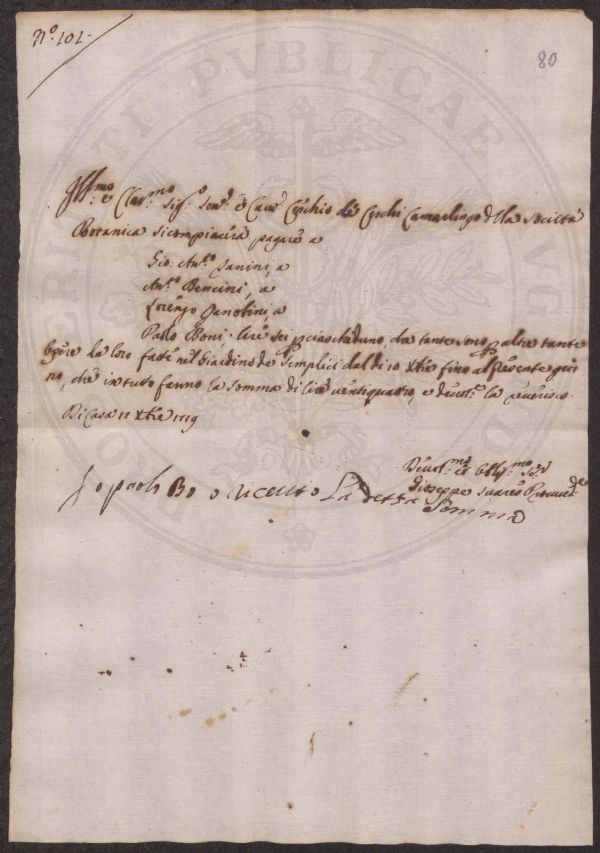 N.º 101.
80
Ill.mo e Clar.mo Sig.e Sen.e e Cav.e Cerchio de Cerchi Camarlingo della Società
Botanica si compiacerà pagare a
Gio: Ant.o Janini, a
Ant.o Bencini, a
Lorenzo Zanobini, a
Paolo Boni. lire sei p ciascheduno, che tante sono p altre tante
Opere da loro fatte nel Giardino de Semplici dal di 10 Xbre fino al presente gior
no, che in tutto fanno la somma di lire ventiquattro, e devot.e la riverisco.
Di Casa 11 Xbre 1719
Devot.mo et Obblig.mo Se.e
Giuseppe Suares Provved.e
Io paolo Bo o Riceuto La detta
Somma